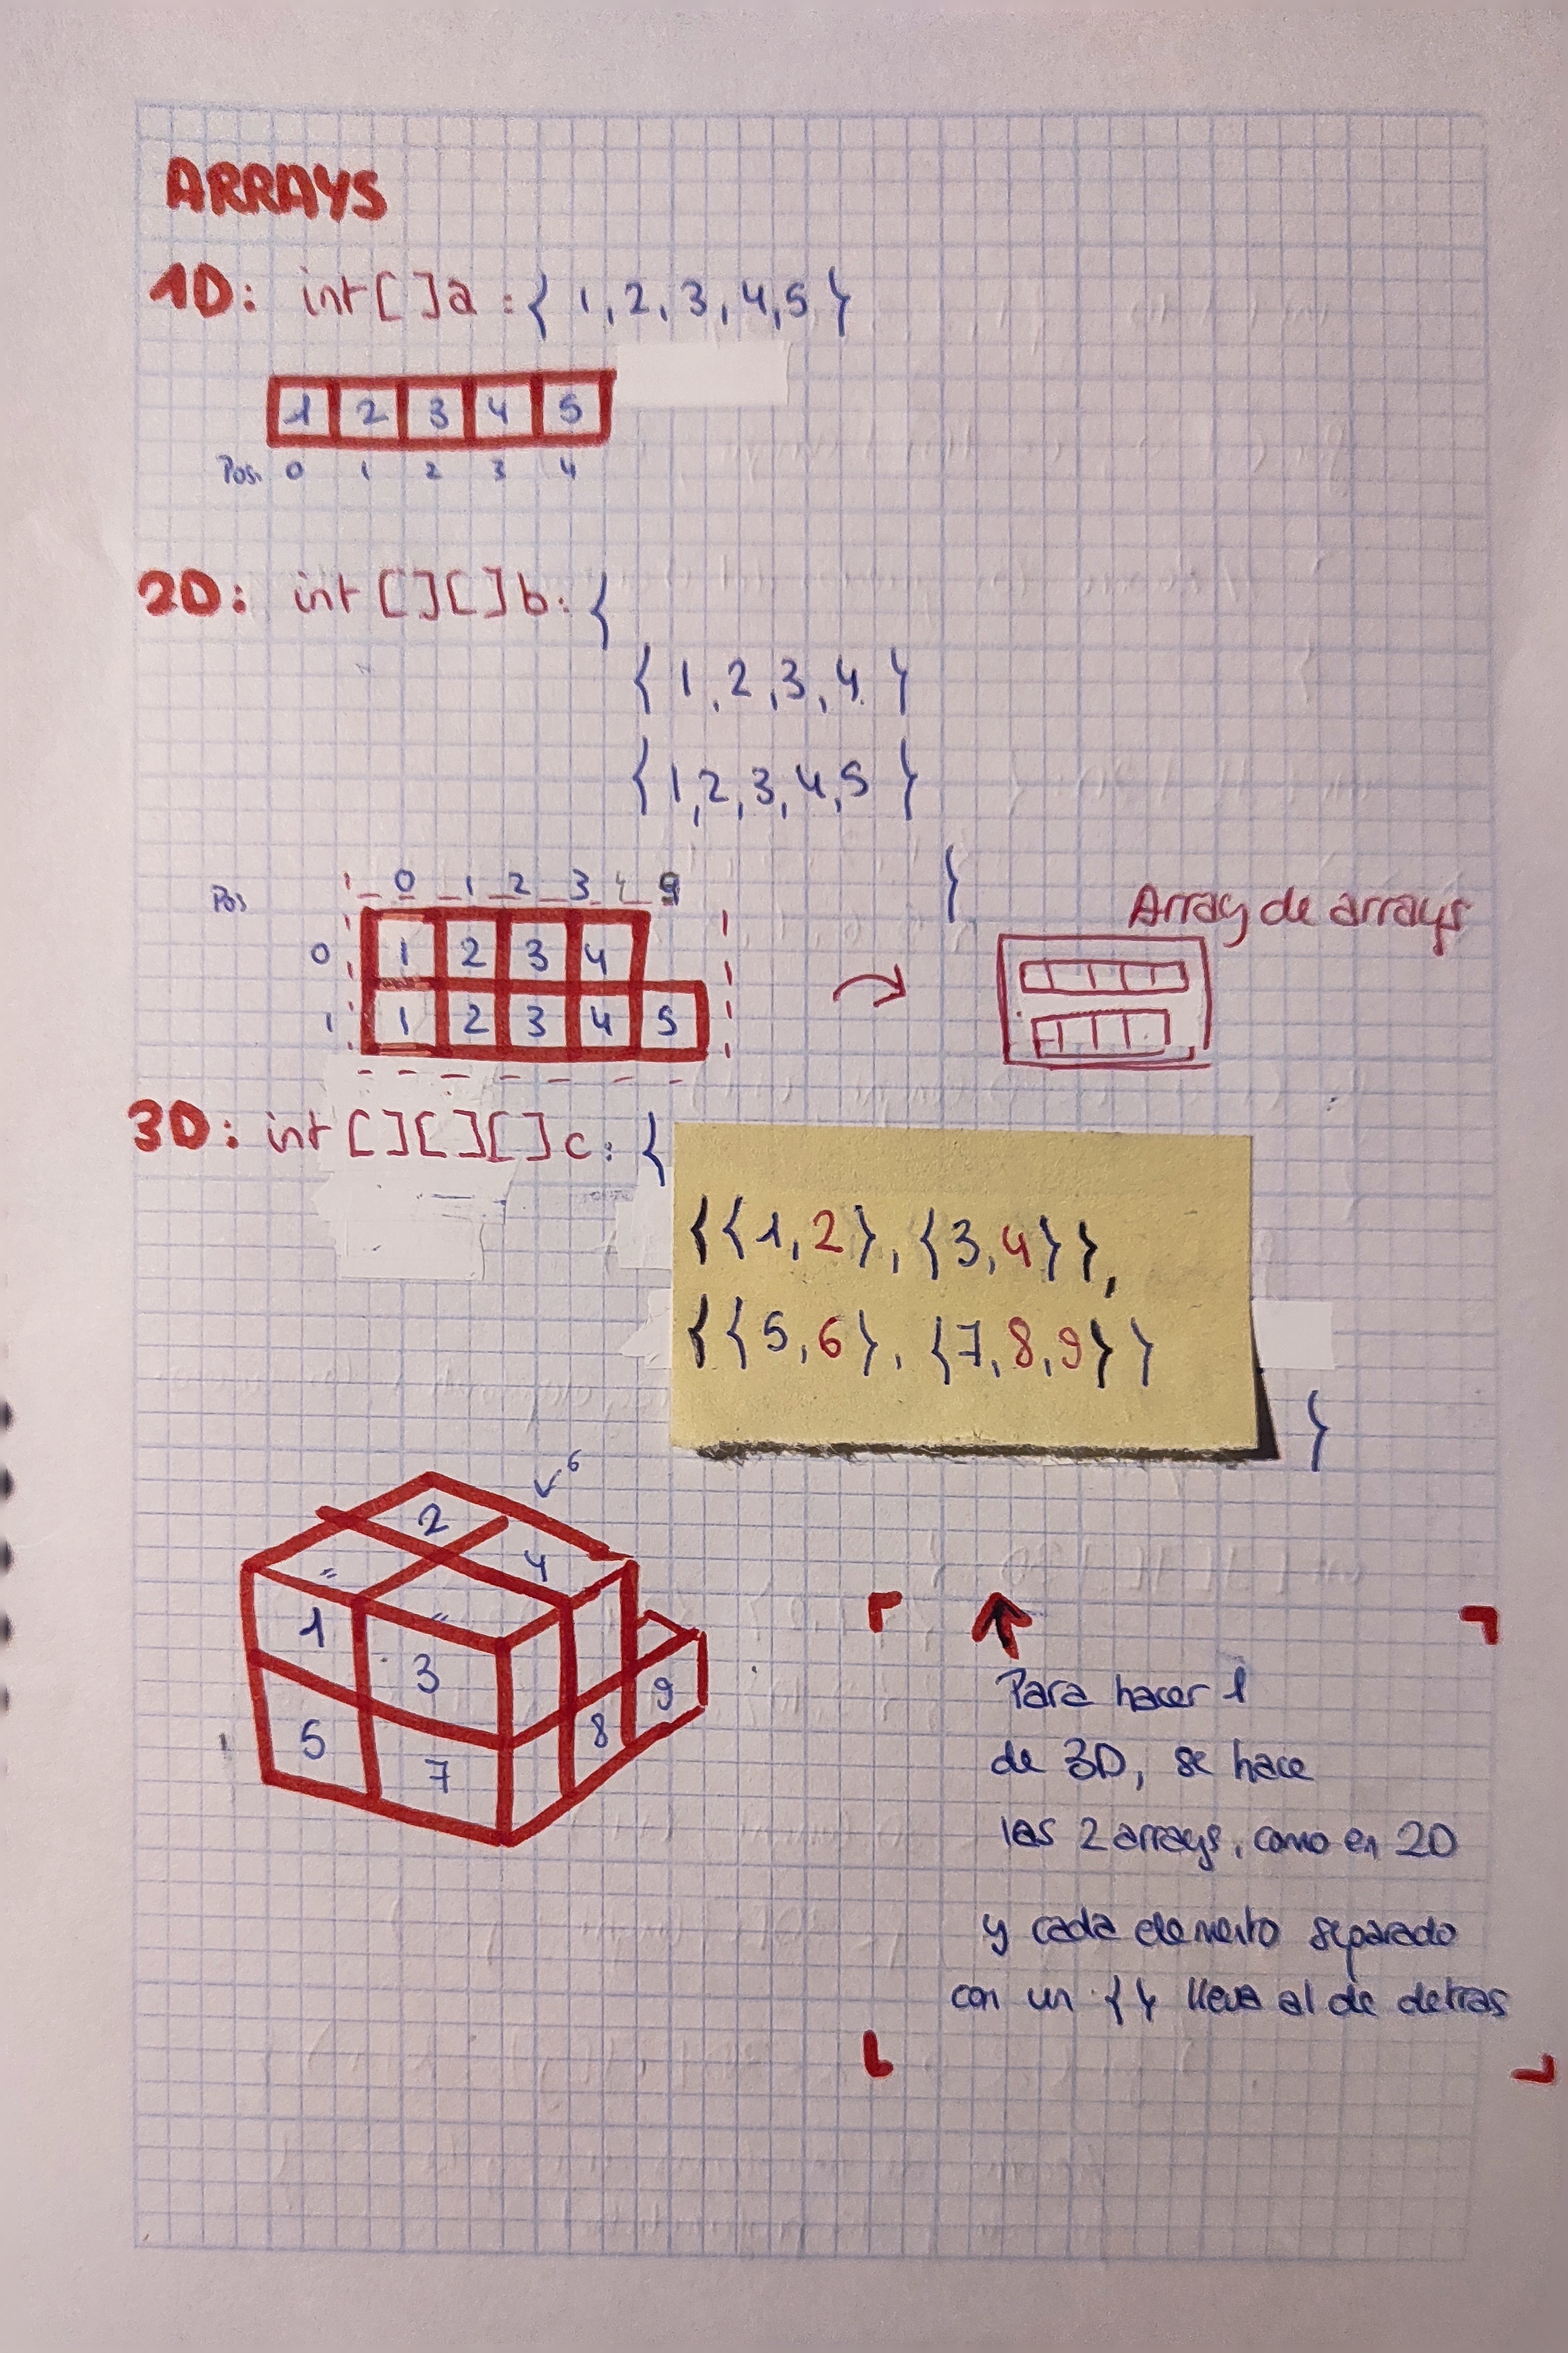 ARRAYS
1D: int[]a:{ 1,2,3,4,5 }
1 2 3 4 5
Pos. 0 1 2 3 4
2D: int[][]b:{
{ 1,2,3,4 }
{1,2,3,4,5 }
}
Pos 0 1 2 3
0 1 2 3 4
1 1 2 3 4 5
Array de arrays
3D: int[][][]c:{
{{1,2},{3,4}},
{{5,6},{7,8,9}}
}
6
2
4
1 3
5 7 8 9
Para hacer 1
de 3D, se hace
las 2 arrays, como en 2D
y cada elemento separado
con un {} lleva al de detras